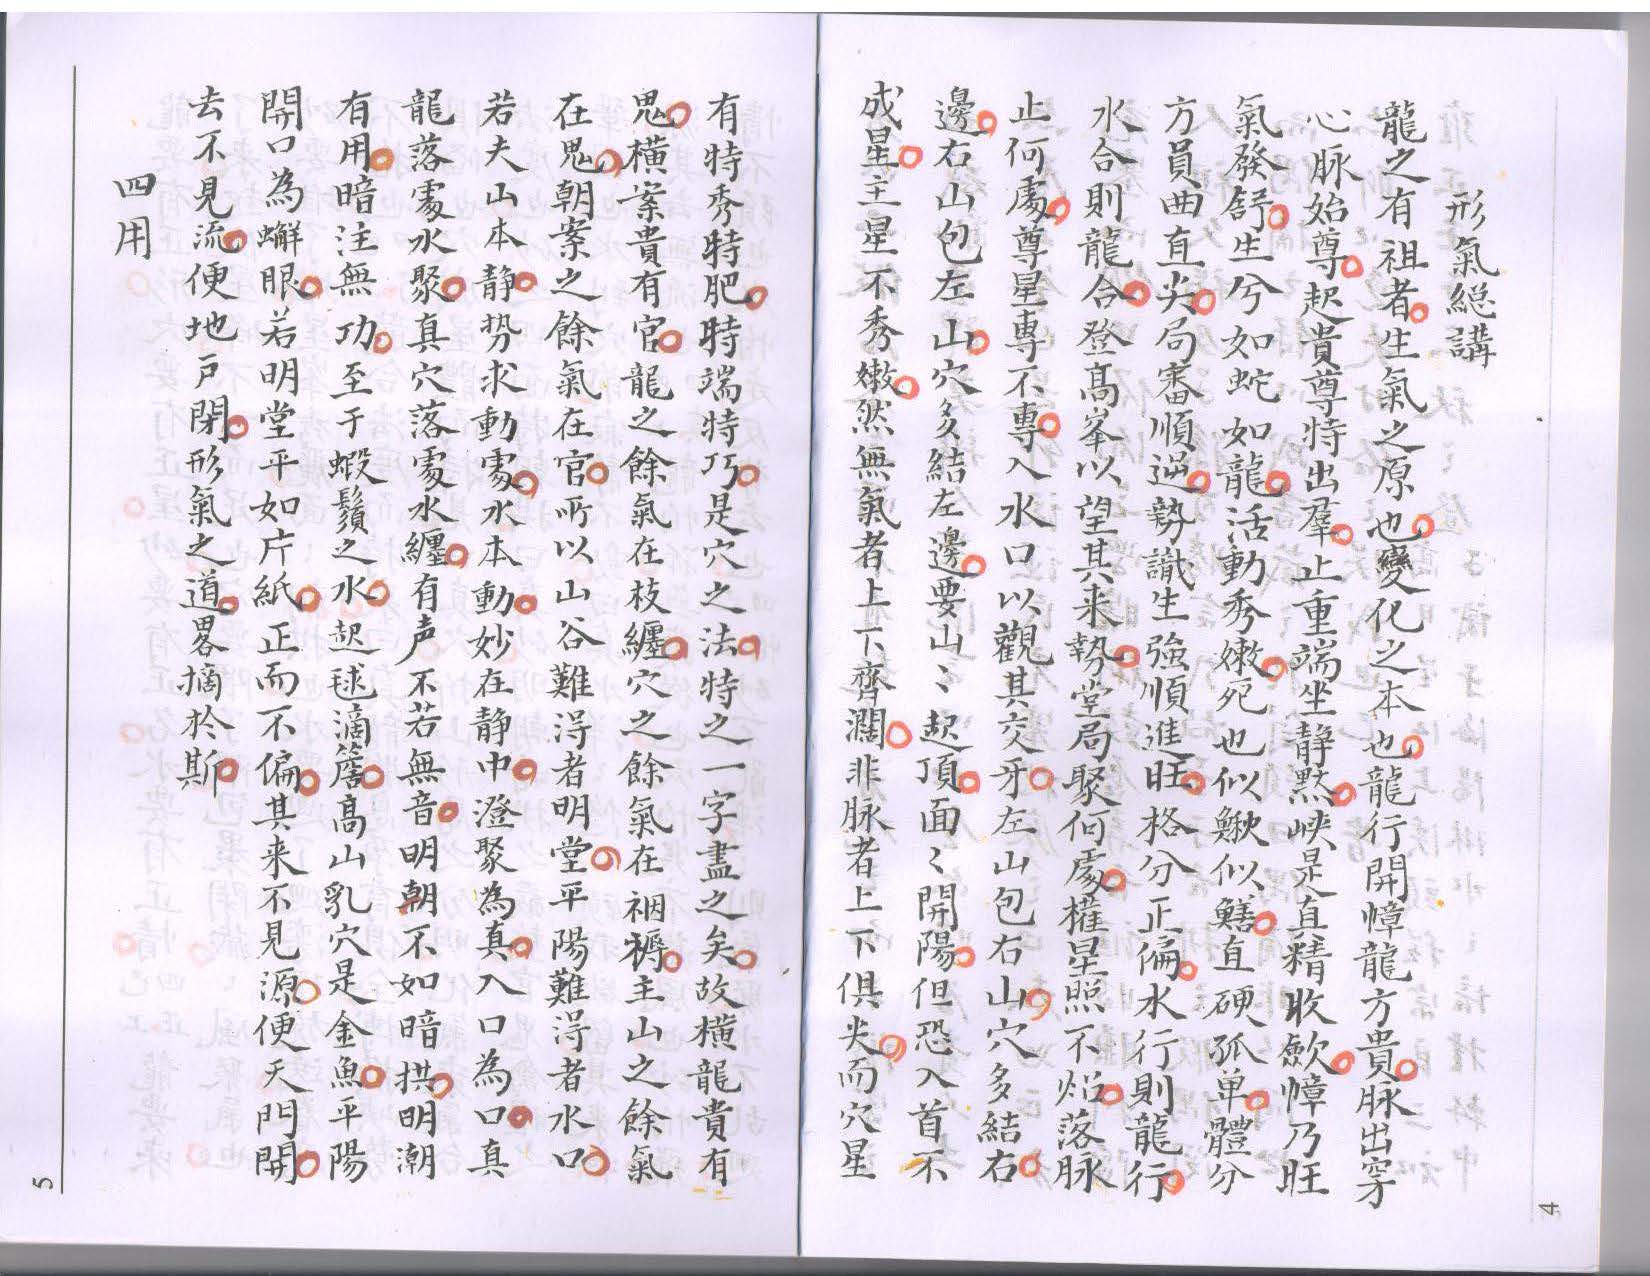 形氣総講
龍之有祖者生氣之原也變化之本也龍行開幛龍方貴脉出穿
心脉始尊起貴尊特出羣止重端坐静黙峡是真精收歛幛乃旺
氣發舒生兮如蛇如龍活動秀嫩死也似鰍似鱔直硬孤单體分
方員曲直尖局審順逆勢識生強順進旺格分正偏水行則龍行
水合則龍合登髙峯以望其来勢堂局聚何處權星照不焰落脉
止何處尊星專不專入水口以觀其交牙左山包右山穴多結右
邊右山包左山穴多結左邊要山〻起頂面〻開陽但恐入首不
成星主星不秀嫩然無氣者上下齊濶非脉者上下俱尖而穴星
有特秀特肥特端特巧是穴之法特之一字盡之矣故橫龍貴有
鬼橫案貴有官龍之餘氣在枝纏穴之餘氣在裀褥主山之餘氣
在鬼朝案之餘氣在官所以山谷難淂者明堂平陽難淂者水口
若夫山本静势求動處水本動妙在静中澄聚為真入口為口真
龍落處水聚真穴落處水纏有声不若無音明朝不如暗拱明潮
有用暗注無功至于蝦鬚之水起毬滴簷髙山乳穴是金魚平陽
開口為蠏眼若明堂平如片紙正而不偏其来不見源便天門開
去不見流便地戸閉形氣之道畧摘於斯
四用
4
5